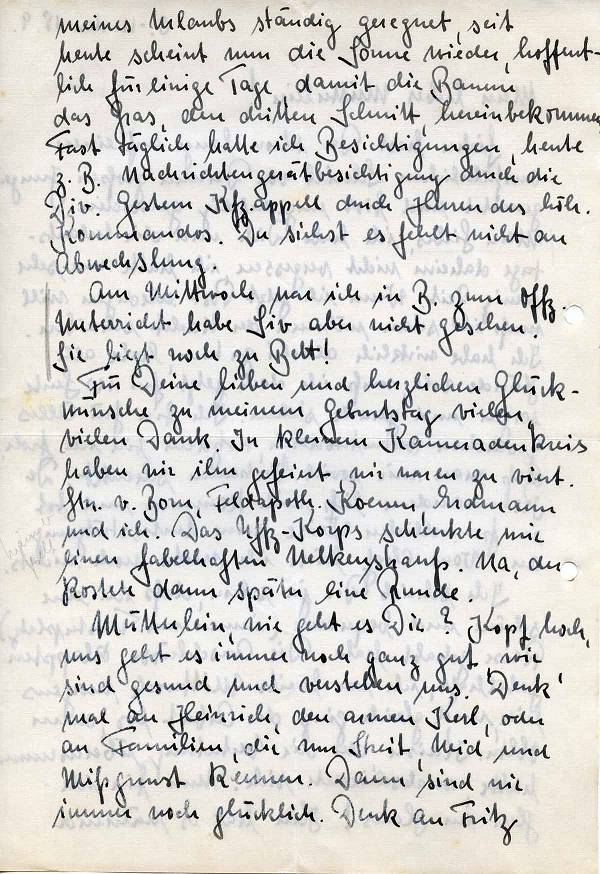 meines Urlaubs ständig geregnet, seit
heute scheint nun die Sonne wieder, hoffent-
lich für einige Tage, damit die Bauern
das Gras, den dritten Schnitt, hereinbekommen.
Fast täglich hatte ich Besichtigungen, heute
z. B. Nachrichtengerätbesichtigung durch die
Div. Gestern Kfz.appell durch Herren des höh.
Kommandos. Du siehst es fehlt nicht an
Abwechslung.
Am Mittwoch war ich in B. zum Offz.
Unterricht habe Siv aber nicht gesehen.
Sie liegt noch zu Bett!
Für Deine lieben und herzlichen Glück-
wünsche zu meinem Geburtstag vielen,
vielen Dank. In kleinem Kameradenkreis
haben wir ihn gefeiert, wir waren zu viert.
v. Born, Feldapoth. Koenn, Erdmann
und ich. Das Uffz-Korps schenkte mir
einen fabelhaften Nelkenstrauß. Na, der
kostete dann später eine Runde.
Mütterlein, wie geht es Dir? Kopf hoch,
uns geht es immer noch ganz gut, wir
sind gesund und verstehen uns. Denk
mal an Heinrich, den armen Kerl, oder
an Familien, die nur Streit, Neid, und
Mißgunst kennen. Dann sind wir
immer noch glücklich. Denk an Fritz